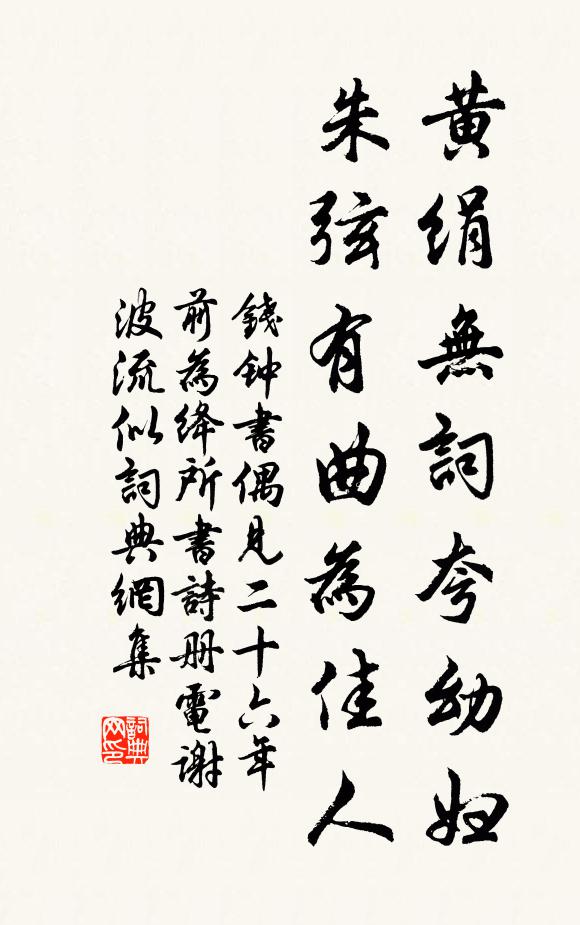 黄絹無詞夸幼妇
朱弦有曲為佳人
錢钟書偶見二十六年
前為绛所書詩册電謝
波流似詞典網集
詞典
网印